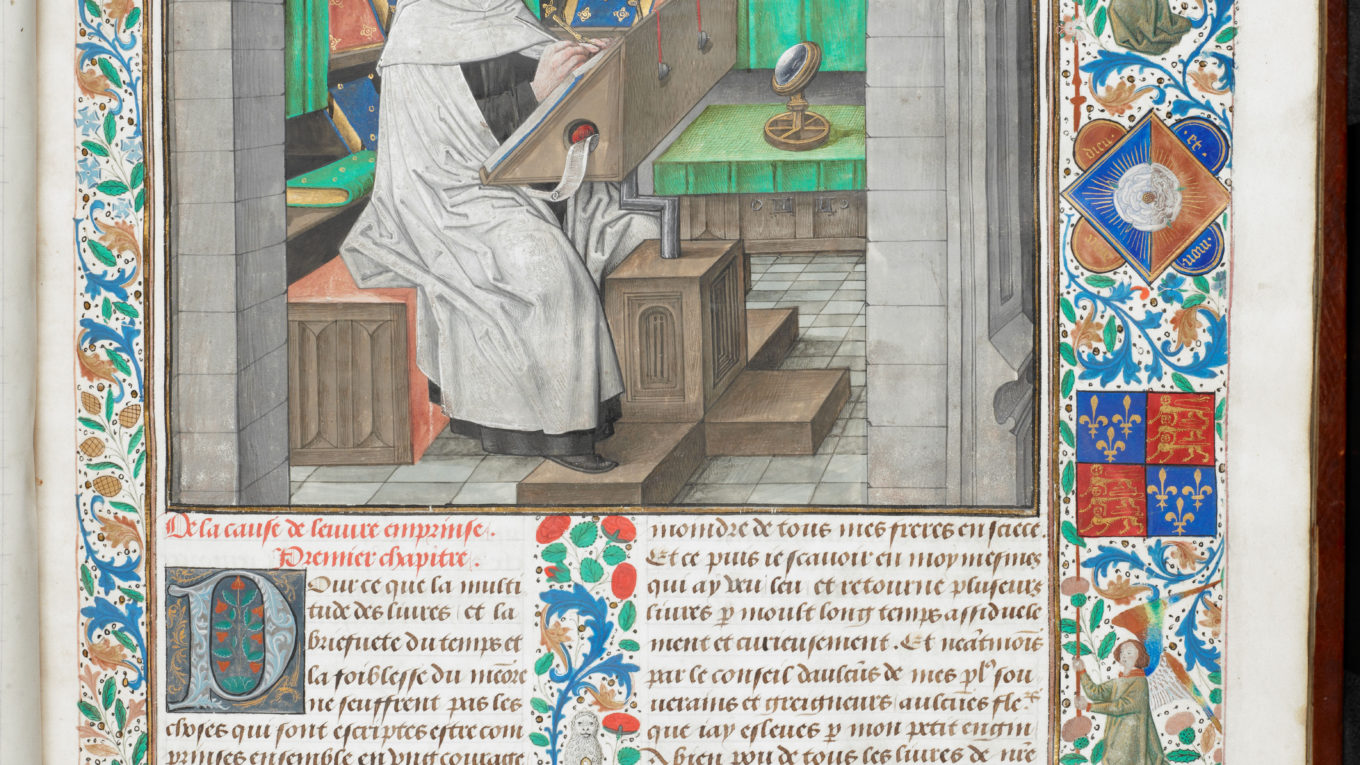 De la cause de leuure emprinse.
Premier chapitre.
Pour ce que la multi
tude des liures et la
briefuete du temps et
la foiblesse du memore
ne seuffrent pas les
choses qui sont escriptes estre com
prinses ensemble en vng courage
moindre de tous mes freres en sciece.
Et ce puis ie scauoir en moy mesmes
qui ay veu leu et retourne plusieurs
liures p moult long temps assiduele
ment et curieusement. Et neatmoins
par le conseil daulcus de mes pl sou
uerains et greigneurs aulcues fle
que iay esleues p mon petit engin
bien pou de tous les liures de nre
dieu
et
mon